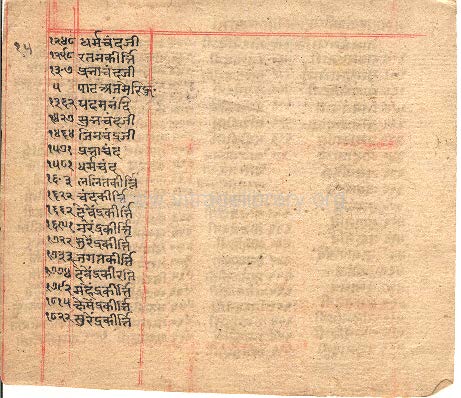 १५
१२४८ धर्मचंदजी
१२९६ रतनकीर्त्ति
१३०७ प्रनाचंदजी
५ पाट अजमेरि
१३६२ पदमनंदि
१४२७ सुभचंदजी
१४६४ जिनचंद्रजी
१५७१ प्रभाचंद
१५८१ धर्मचंद
१६०३ ललितकीर्त्ति
१६२२ चंदकीर्त्ति
१६६२ देवेंद्रकीर्त्ति
१६९१ नरेंद्रकीर्त्ति
१७२२ सुरेंद्रकीर्त्ति
१७३३ जगतकीर्त्ति
१७७४ देवेंद्रकीरति
१७९२ महेंद्रकीर्त्ति
१८१५ क्षेमेंद्रकीर्त्ति
१८२२ सुरेंद्रकीर्त्ति